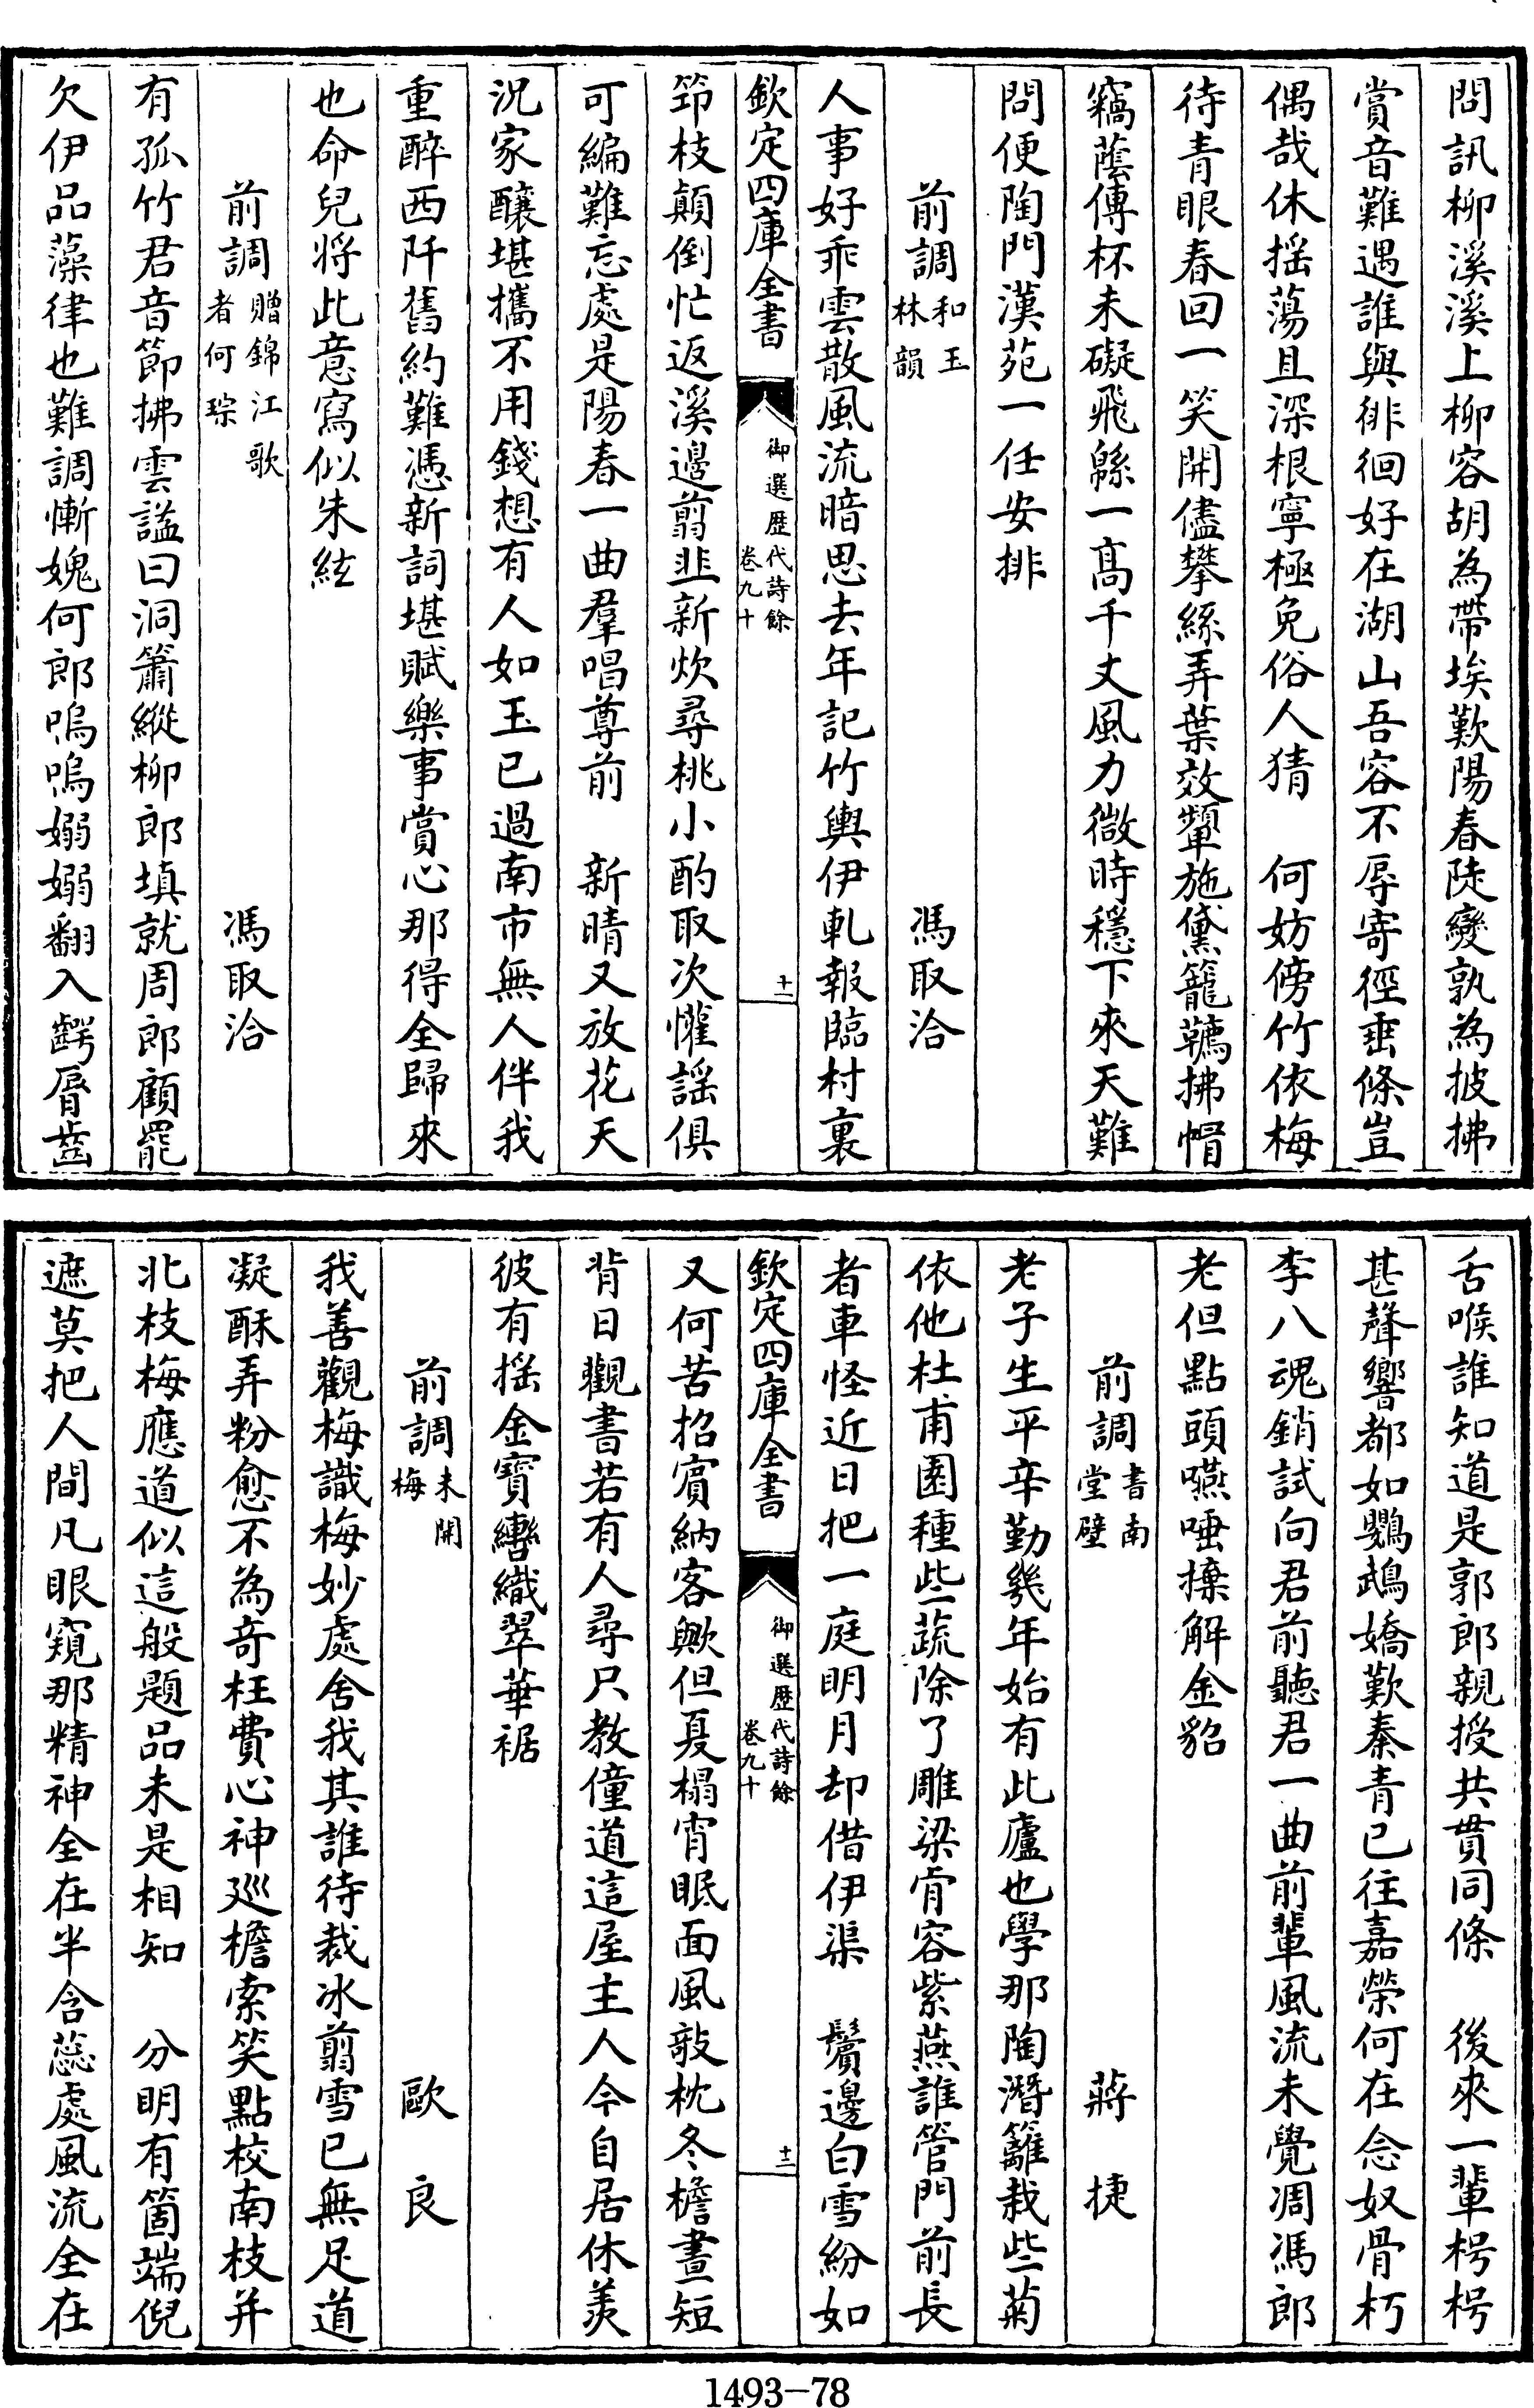 問訊柳溪溪上柳容胡為帶埃歎陽春陡變孰為披拂
賞音難遇誰與徘徊好在湖山吾容不辱寄徑垂條豈
偶哉休揺蕩且深根寧極免俗人猜　何妨傍竹依梅
待青眼春回一笑開儘攀絲弄葉效顰施黛籠鞲拂帽
竊蔭傳杯未礙飛緜一髙千丈風力微時穩下來天難
問便陶門漢苑一任安排
前調和玉林韻　馮取洽
人事好乖雲散風流暗思去年記竹輿伊軋報臨村裏
欽定四庫全書　御選歴代詩餘卷九十　十一
筇枝顛倒忙返溪邊翦韭新炊尋桃小酌取次懽謡俱
可編難忘處是陽春一曲羣唱尊前　新晴又放花天
況家釀堪攜不用錢想有人如玉已過南市無人伴我
重醉西阡舊約難憑新詞堪賦樂事賞心那得全歸來
也命兒將此意寫似朱絃
前調贈錦江歌者何琮　馮取洽
有孤竹君音節拂雲謚曰洞簫縱柳郎填就周郎顧罷
欠伊品藻律也難調慚媿何郎嗚嗚嫋嫋翻入齶脣齒
舌喉誰知道是郭郎親授共貫同條　後來一輩枵枵
甚聲響都如鸚鵡嬌歎秦青已往嘉榮何在念奴骨朽
李八魂銷試向君前聽君一曲前輩風流未覺凋馮郎
老但點頭嚥唾擽解金貂
前調書南堂壁　蔣捷
老子生平辛勤幾年始有此廬也學那陶潛籬栽些菊
依他杜甫園種些蔬除了雕梁肯容紫燕誰管門前長
者車怪近日把一庭明月却借伊渠　鬢邊白雪紛如
欽定四庫全書　御選歴代詩餘卷九十　十二
又何苦招賔納客歟但夏榻宵眠面風敧枕冬檐晝短
背日觀書若有人尋只教僮道這屋主人今自居休羨
彼有揺金寶轡織翠華裾
前調未開梅　歐良
我善觀梅識梅妙處舍我其誰待裁冰翦雪已無足道
凝酥弄粉愈不為竒枉費心神巡檐索笑點校南枝并
北枝梅應道似這般題品未是相知　分明有箇端倪
遮莫把人間凡眼窺那精神全在半含蕊處風流全在
1493—78